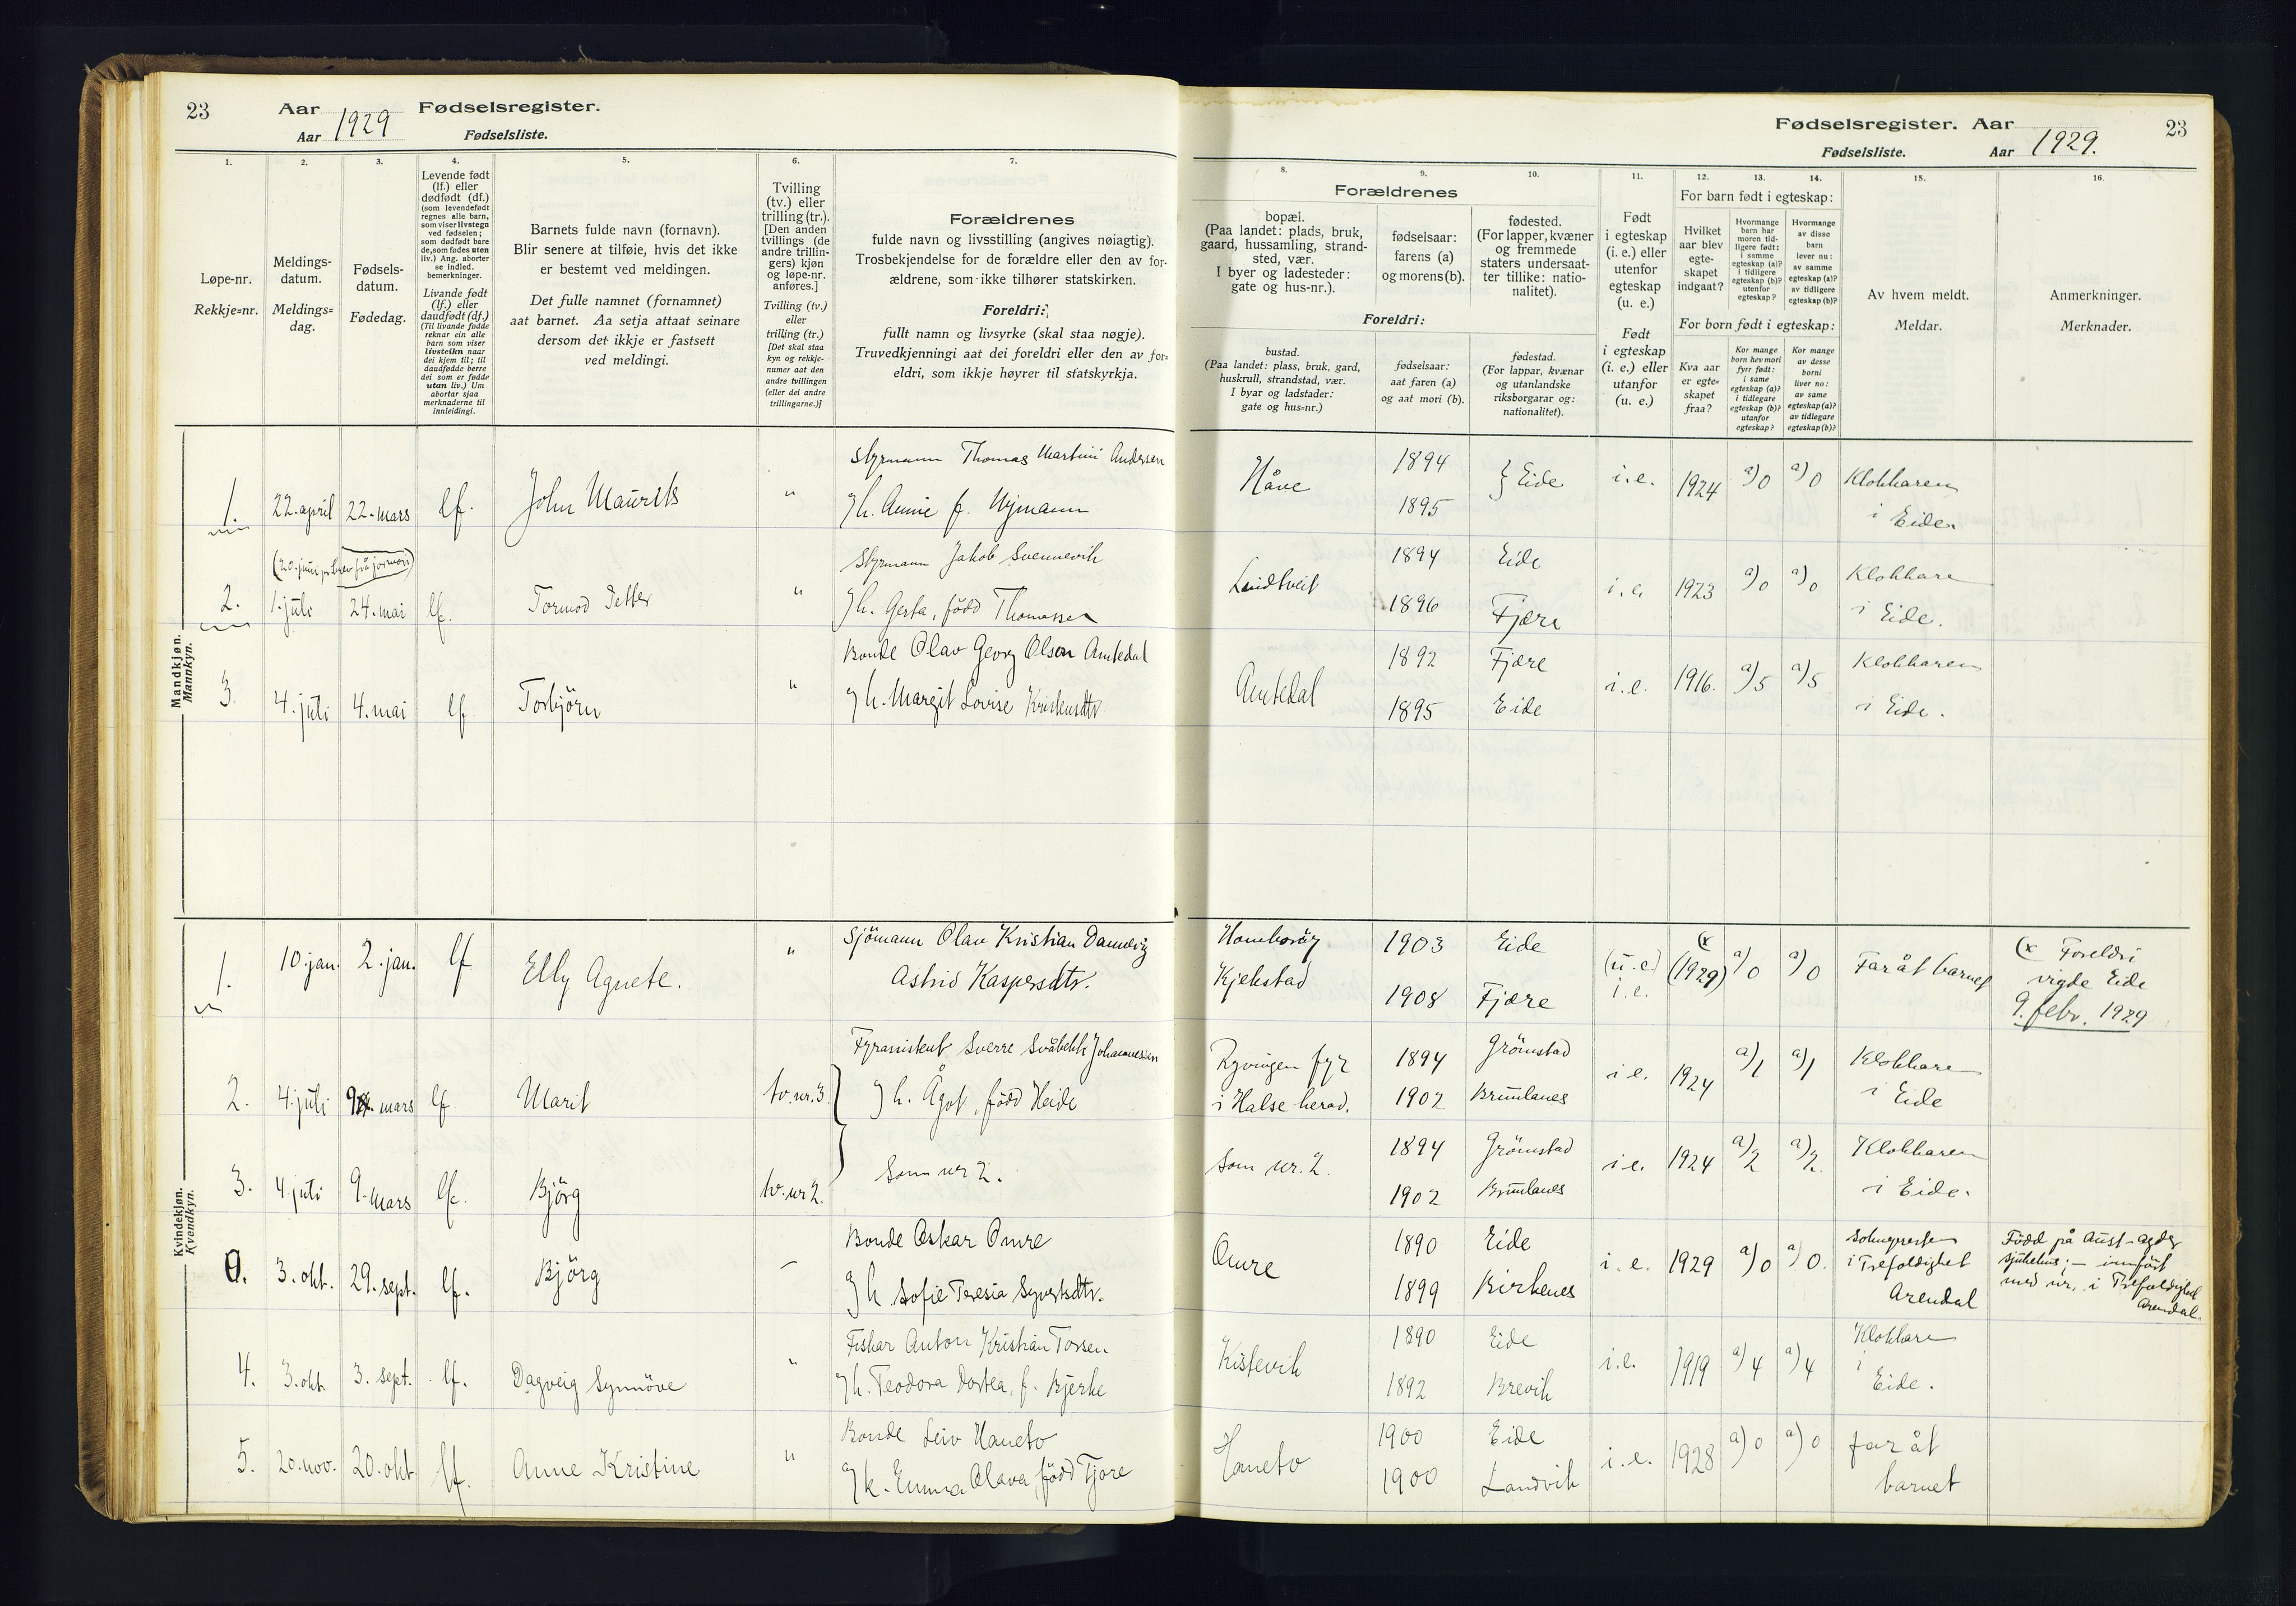 23
Aar 1929 Fødselsregister.
Aar Fødselsliste.
1.
2.
3.
4.
5.
6.
7.
Løpe-nr.
Rekkje-nr.
Meldings-
datum.
Meldings-
dag.
Fødsels-
datum.
Fødedag.
Levende født
(lf.) eller
dødfødt (df.)
(som levendefødt
regnes alle barn,
som viser livstegn
ved fødselen;
som dødfødt bare
de, som fødes uten
liv.) Ang. aborter
se indled.
bemerkninger.
Livande født
(lf.) eller
daudfødt (df.)
(Til livande fødde
reknar ein alle
barn som viser
livsteikn naar
dei kjem til; til
daudfødde berre
dei som er fødde
utan liv.) Um
abortar sjaa
merknaderne til
innleidingi.
Barnets fulde navn (fornavn).
Blir senere at tilføie, hvis det ikke
er bestemt ved meldingen.
Det fulle namnet (fornamnet)
aat barnet. Aa setja attaat seinare
dersom det ikkje er fastsett
ved meldingi.
Tvilling
(tv.) eller
trilling (tr.).
[Den anden
tvillings (de
andre trillin-
gers) kjøn
og løpe-nr.
anføres.]
Tvilling (tv.)
eller
trilling (tr.)
[Det skal staa
kyn og rekkje-
numer aat den
andre tvillingen
(eller dei andre
trillingarne.)]
Forældrenes
fulde navn og livsstilling (angives nøiagtig).
Trosbekjendelse for de forældre eller den av for-
ældrene, som ikke tilhører statskirken.
Foreldri:
fullt namn og livsyrke (skal staa nøgje).
Truvedkjenningi aat dei foreldri eller den av for-
eldri, som ikkje høyrer til statskyrkja.
Fødselsregister. Aar 1929.
Fødselsliste. Aar
23
8.
9.
10.
11.
12.
13.
14.
15.
16.
Forældrenes
bopæl.
(Paa landet: plads, bruk,
gaard, hussamling, strand-
sted, vær.
I byer og ladesteder:
gate og hus-nr.).
fødselsaar:
farens (a)
og morens (b).
fødested.
(For lapper, kvæner
og fremmede
staters undersaat-
ter tillike: natio-
nalitet).
Foreldri:
bustad.
(Paa landet: plass, bruk, gard,
huskrull, strandstad, vær.
I byar og ladstader:
gate og hus-nr.)
fødselsaar:
aat faren (a)
og aat mori (b).
fødestad.
(For lappar, kvænar
og utanlandske
riksborgarar og:
nationalitet).
Født
i egteskap
(i. e.) eller
utenfor
egteskap
(u. e.)
Født
i egteskap
(i. e.) eller
utanfor
(u. e.)
For barn født i egteskap:
Hvilket
aar blev
egte-
skapet
indgaat?
Hvormange
barn har
moren tid-
ligere født:
i samme
egteskap (a)?
i tidligere
egteskap (b)?
utenfor
egteskap?
Hvormange
av disse
barn
lever nu:
av samme
egteskap (a)?
av tidligere
egteskap (b)?
For born født i egteskap:
Kva aar
er egte-
skapet
fraa?
Kor mange
born hev mori
fyrr født:
i same
egteskap (a)?
i tidlegare
egteskap (b)?
utanfor
egteskap?
Kor mange
av desse
borni
liver no:
av same
egteskap (a)?
av tidlegare
egteskap (b)?
Av hvem meldt.
Meldar.
Anmerkninger.
Merknader.
Mandkjøn.
Mannkyn.
Styrmann Thomas Martini Andersen
1. 22. april 22. mars lf. John Maurits " g h. Annie f. Nymann
Håve 1894 1895 } Eide i.e. 1924 a) 0 a) 0 Klokkaren
i Eide.
(20. juni pr. brev frå jormori)
Styrmann Jakob Svennevik
2. 1. juli 24. mai lf. Tormod Petter " g h. Gerta, född Thomassen
Landtveit 1894 Eide 1896 Fjære i.e. 1923 a) 0 a) 0 Klokkare
i Eide.
Bonde Olav Georg Olson Amtedal
3. 4. juli 4. mai lf Torbjörn " g h. Margit Lovise Kristensdtr
Amtedal 1892 Fjære 1895 Eide i.e. 1916. a) 5 a) 5 Klokkaren
i Eide.
Kvindekjøn.
Kvendkyn.
Sjömann Olav Kristian Dannevig
1. 10. jan. 2. jan. lf Elly Agnete. " Astrid Kaspersdtr.
Homborsy
Kjekstad
1903 Eide 1908 Fjære (u.e.) i.e. (x (1929) a) 0 a) 0 Far åt barnet
(x Foreldri
vigde Eide
9. febr. 1929
Fyrassistent Sverre Svåbekk Johannessen
2. 4. juli 9. mars lf Marit tv. nr. 3. g h. Ågot, född Heide
Ryvingen fyr
i Halse herad.
1894 Grömstad 1902 Brunlanes i e. 1924 a) 1 a) 1 Klokkare
i Eide
3. 4. juli 9. mars lf. Björg tv. nr 2. Som nr 2.
Som nr. 2. 1894 Grömstad 1902 Brunlanes i e. 1924 a) 2 a) 2. Klokkaren
i Eide.
Bonde Oskar Omre
0. 3. okt. 29. sept. lf. Björg – g h. Sofie Teresia Syvertsdtr.
Omre 1890 Eide 1899 Birkenes i. e. 1929 a) 0 a) 0. Sokneprest
i Trefoldighet
Arendal
Född på Aust-Agder
sjukehus; – innfört
med nr. i Trefoldighet
Arendal.
Fiskar Anton Kristian Torsen
4. 3. okt 3. sept. lf. Dagveig Synnöve " g h. Teodora Dortea, f. Bjerke
Kistevik 1890 Eide 1892 Brevik i.e. 1919 a) 4 a) 4 Klokkare
i
Eide.
Bonde Leiv Haneto
5. 20. nov. 20. okt lf. Anne Kristine " g k. Emma Olava, född Tjore
Haneto 1900 Eide 1900 Landvik i. e. 1928 a) 0 a) 0 far åt
barnet